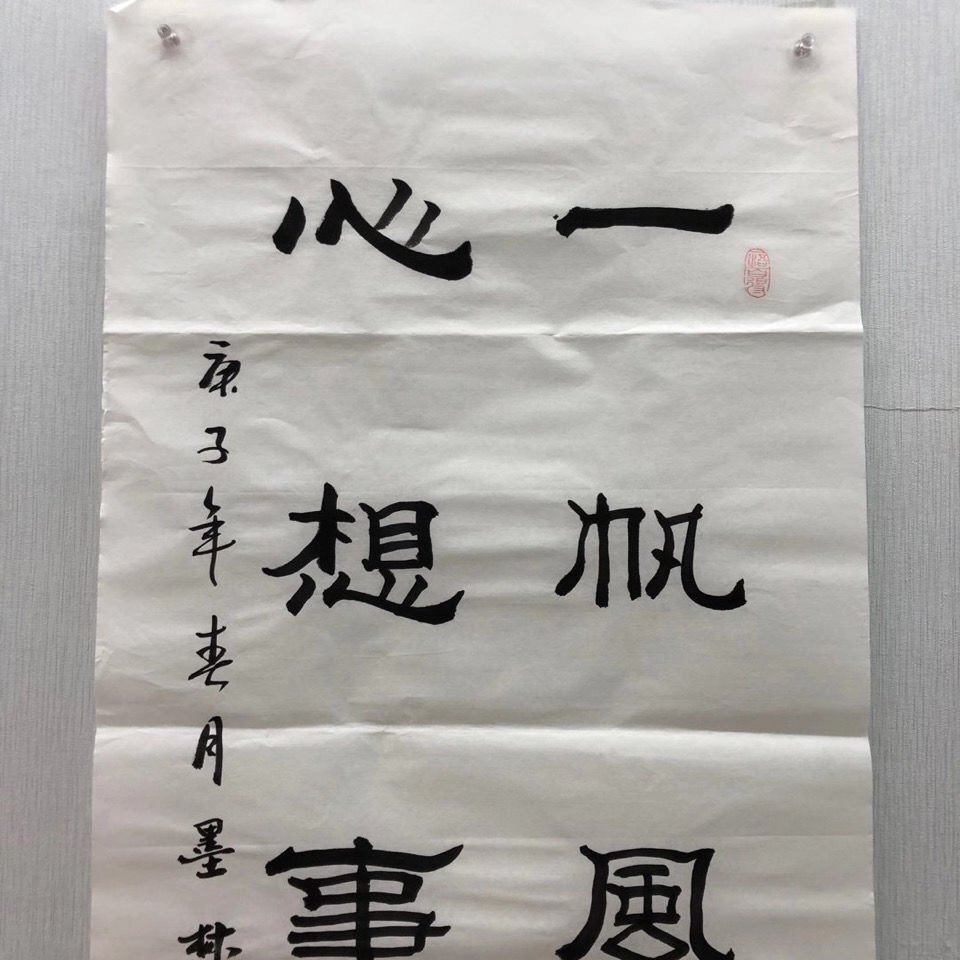 一帆風
心想事
庚子年春月墨林